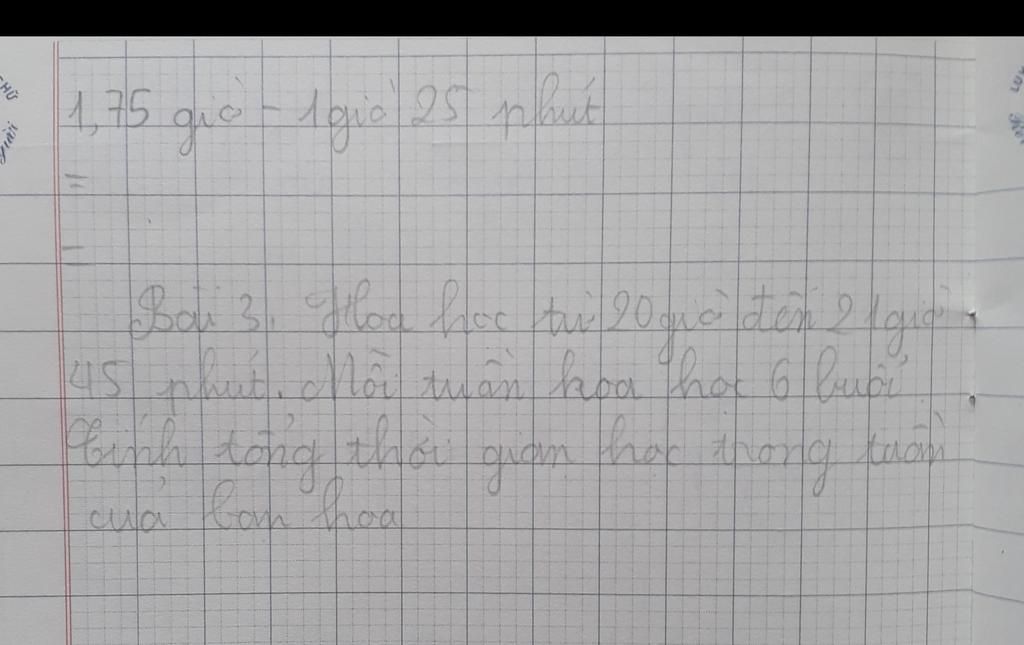 1,75 giờ - 1giờ 25 phút
=
=
Bài 3. Hoa học từ 20 giờ đến 21 giờ
45 phút. Mỗi tuần hoa học 6 buổi
Tính tổng thời gian học trong tuần
của bạn hoa